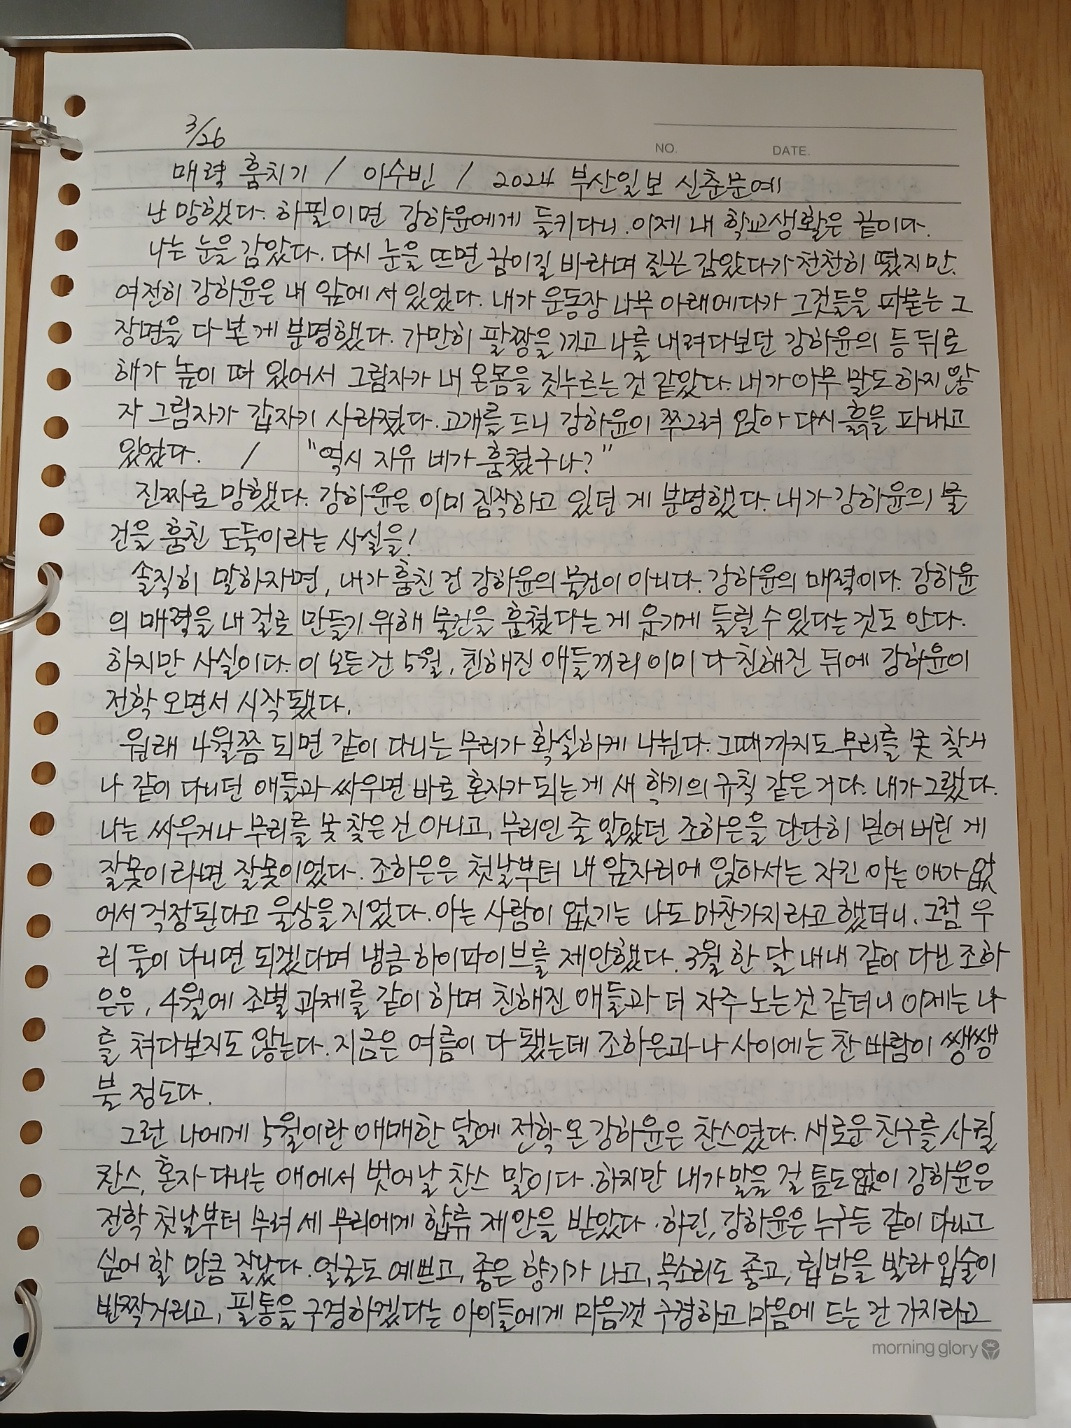 3/26
NO. DATE.
매력 훔치기 / 이수빈 / 2024 부산일보 신춘문예
난 망했다. 하필이면 강하윤에게 들키다니. 이제 내 학교생활은 끝이다.
나는 눈을 감았다. 다시 눈을 뜨면 꿈이길 바라며 질끈 감았다가 천천히 떴지만.
여전히 강하윤은 내 앞에 서 있었다. 내가 운동장 나무 아래에다가 그것들을 파묻는 그
장면을 다 본 게 분명했다. 가만히 팔짱을 끼고 나를 내려다보던 강하윤의 등 뒤로
해가 높이 떠 있어서 그림자가 내 온몸을 짓누르는 것 같았다. 내가 아무 말도 하지 않
자 그림자가 갑자기 사라졌다. 고개를 드니 강하윤이 쭈그려 앉아 다시 흙을 파내고
있었다. / "역시 자유 네가 훔쳤구나?"
진짜로 망했다. 강하윤은 이미 짐작하고 있던 게 분명했다. 내가 강하윤의 물
건을 훔친 도둑이라는 사실을!
솔직히 말하자면, 내가 훔친 건 강하윤의 물건이 아니다. 강하윤의 매력이다. 강하윤
의 매력을 내 걸로 만들기 위해 물건을 훔쳤다는 게 웃기게 들릴 수 있다는 것도 안다.
하지만 사실이다. 이 모든 건 5월, 친해진 애들끼리 이미 다 친해진 뒤에 강하윤이
전학 오면서 시작됐다.
원래 4월쯤 되면 같이 다니는 무리가 확실하게 나뉜다. 그때까지도 무리를 못 찾거
나 같이 다니던 애들과 싸우면 바로 혼자가 되는 게 새 학기의 규칙 같은 거다. 내가 그랬다.
나는 싸우거나 무리를 못 찾은 건 아니고, 무리인 줄 알았던 조하은을 단단히 믿어 버린 게
잘못이라면 잘못이었다. 조하은은 첫날부터 내 앞자리에 앉아서는 자긴 아는 애가 없
어서 걱정된다고 울상을 지었다. 아는 사람이 없기는 나도 마찬가지라고 했더니, 그럼 우
리 둘이 다니면 되겠다며 냉큼 하이파이브를 제안했다. 3월 한 달 내내 같이 다닌 조하
은은, 4월에 조별 과제를 같이 하며 친해진 애들과 더 자주 노는 것 같더니 이제는 나
를 쳐다보지도 않는다. 지금은 여름이 다 됐는데 조하은과 나 사이에는 찬 바람이 쌩쌩
불 정도다.
그런 나에게 5월이란 애매한 달에 전학 온 강하윤은 찬스였다. 새로운 친구를 사귈
찬스, 혼자 다니는 애에서 벗어날 찬스 말이다. 하지만 내가 말을 걸 틈도 없이 강하윤은
전학 첫날부터 무려 세 무리에게 합류 제안을 받았다. 하긴, 강하윤은 누구든 같이 다니고
싶어 할 만큼 잘났다. 얼굴도 예쁘고, 좋은 향기가 나고, 목소리도 좋고, 립밤을 발라 입술이
반짝거리고, 필통을 구경하겠다는 아이들에게 마음껏 구경하고 마음에 드는 건 가지라고
morning glory